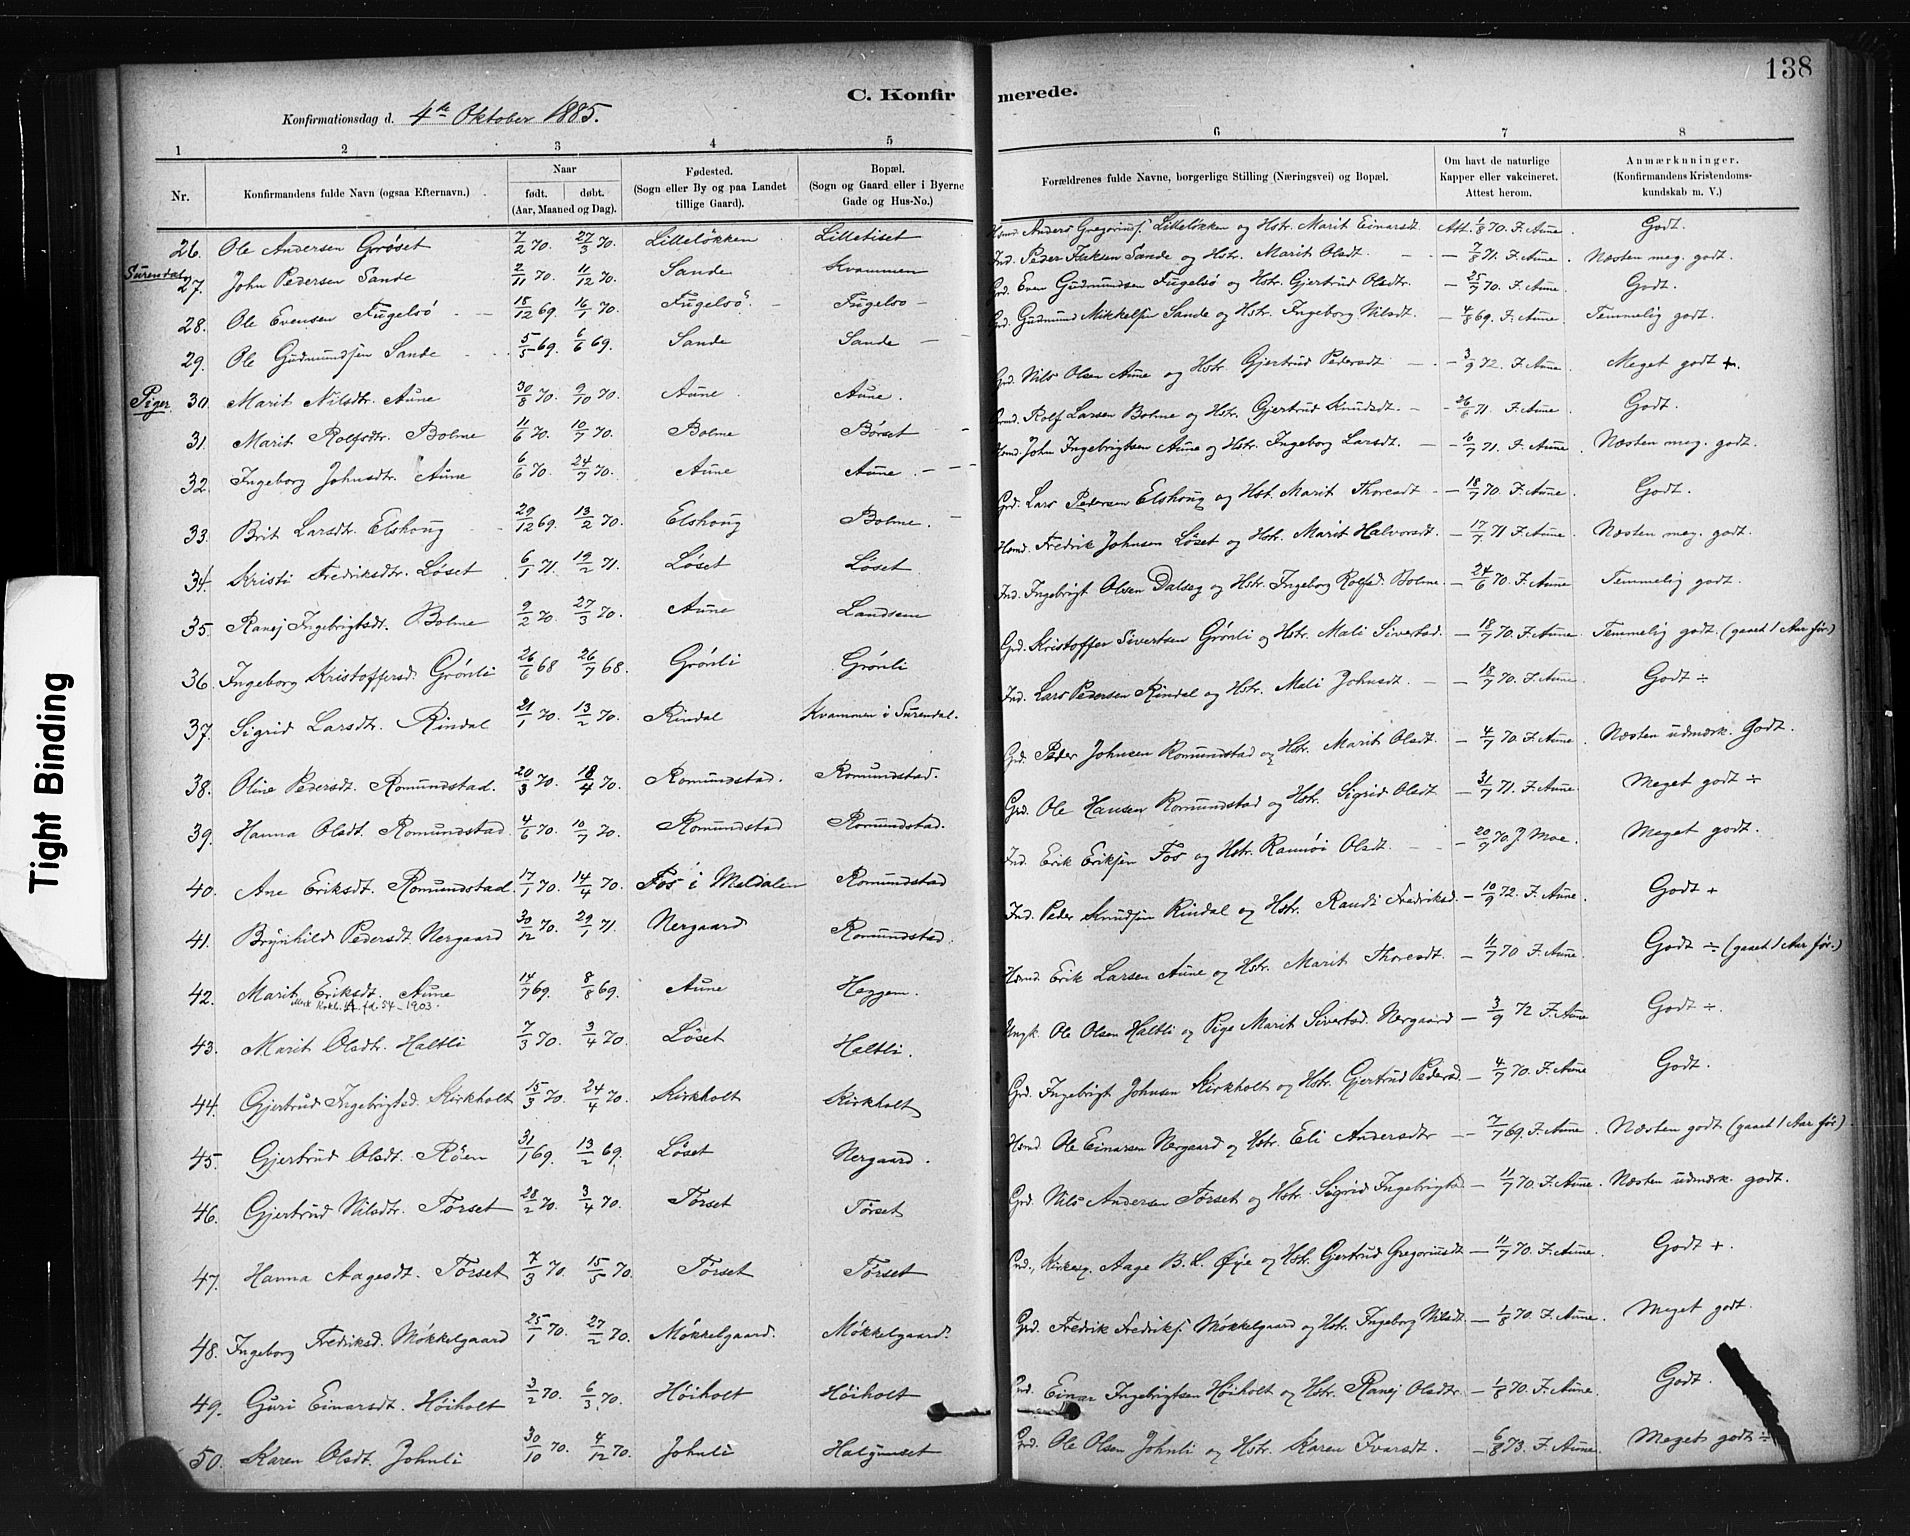 138
C. Konfirmerede.
Konfirmationsdag d. 4de Oktober 1885.
1 2 3 4 5 6 7 8
Nr. Konfirmandens fulde Navn (ogsaa Efternavn). Naar født. døbt. (Aar, Maaned og Dag). Fødested. (Sogn eller By og paa Landet tillige Gaard). Bopæl. (Sogn og Gaard eller i Byerne Gade og Hus-No.) Forældrenes fulde Navne, borgerlige Stilling (Næringsvei) og Bopæl. Om havt de naturlige Kapper eller vakcineret. Attest herom. Anmærkninger. (Konfirmandens Kristendomskundskab m. V.)
26. Ole Andersen Grøset 7/2 70. 27/3 70. Lilleløkken Lilletiset Hsmd. Anders Gregoriusf. Lilleløkken og Hstr. Marit Einarsdt. Att. 1/8 70. F. Aune. Godt.
Surendal 27. John Pedersen Sande 2/11 70. 11/12 70. Sande Kvammen Ind. Peder Sande og Hstr. Marit Olsdt. — 7/8 71. F. Aune. Næsten meg. godt.
28. Ole Evensen Fugelsø 18/12 69. 16/1 70. Fugelsø. Fugelsø — Grd. Even Gudmundsen Fugelsø og Hstr. Gjertrud Olsdtr. — 25/7 70. F. Aune. Godt.
29. Ole Gudmundsen Sande 5/5 69. 6/6 69. Sande Sande — Grd. Gudmund Mikkelsen Sande og Hstr. Ingeborg Nilsdt. — 4/8 69. F. Aune. Temmelig godt.
Piger 30. Marit Nilsdtr. Aune 30/8 70. 9/10 70. Aune. Aune. Grd. Nils Olsen Aune og Hstr. Gjertrud Pedersdt. — 3/9 72. F. Aune. Meget godt +.
31. Marit Rolfsdtr. Bolme 11/6 70. 10/7 70. Bolme Børset Hsmd. Rolf Larsen Bolme og Hstr. Gjertrud Knudsdt. — 26/6 71. F. Aune. Godt.
32. Ingeborg Johnsdtr. Aune 6/6 70. 24/7 70. Aune Aune. Hsmd. John Ingebrigtsen Aune og Hstr. Ingeborg Larsdt. — 10/7 71. F. Aune. Næsten meg. godt.
33. Brit Larsdt. Elshoug 29/12 69. 13/2 70. Elshoug Bolme. — Grd. Lars Pedersen Elshoug og Hst. Marit Thoresdt. — 18/7 70. F. Aune. Godt.
34. Kristi Fredriksdtr. Løset 6/1 71. 19/2 71. Løset Løset. Hsmd. Fredrik Johnsen Løset og Hstr. Marit Halvorsdt. — 17/7 71 F. Aune. Næsten meg. godt.
35. Ranej Ingebrigtsdt. Bolme 9/2 70. 27/3 70. Aune Landsem Ind. Ingebrigt Olsen Dalseg og Hstr. Ingeborg Rolfsd. Bolme. — 24/6 70. F. Aune Temmelig godt.
36. Ingeborg Kristoffersd. Grønli 26/6 68 26/7 68. Grønli Grønli Grd. Kristoffer Sivertsen Grønli og Hstr. Mali Sivertsd. — 18/7 70. F. Aune. Temmelig godt. (gaaet 1 Aar før.)
37. Sigrid Larsdtr. Rindal 21/1 70. 13/2 70. Rindal Kvammen i Surendal. Ind. Lars Pedersen Rindal og Hstr. Mali Johnsdt. — 18/7 70. F. Aune. Godt ÷
38. Oline Pedersdt. Romundstad. 20/3 70. 18/4 70. Romundstad. Romundstad. Grd. Peder Johnsen Romundstad og Hstr. Marit Olsdt. — 4/7 70. F. Aune. Næsten udmærk. Godt.
39. Hanna Olsdt. Romundstad 4/6 70. 10/7 70. Romundstad Romundstad. Grd. Ole Hansen Romundstad og Hstr. Sigrid Olsdt — 31/7 71. F. Aune Meget godt ÷
40. Ane Eriksdt. Romundstad. 17/1 70. 14/4 70. Fos i Meldalen Romundstad Ind. Erik Eriksen Fos og Hstr. Olsdt. — 20/9 70. J. Moe. Meget godt.
41. Brynhild Pedersdt. Nergaard 30/12 70. 29/1 71. Nergaard Romundstad. Ind. Peder Knudsen Rindal og Hstr. Randi Fredriksd. — 10/9 72. F. Aune. Godt +
42. Marit Eriksdt. Aune 14/7 69. 8/8 69. Aune Heggem. Hsmd. Erik Larsen Aune og Hstr. Marit Thoresdt. — 11/7 70 F. Aune. Godt ÷ (gaaet 1 Aar før.)
54 - 1903.
43. Marit Olsdtr. Haltli 7/3 70. 3/4 70. Løset Haltli. Ungk. Ole Olsen Haltli og Pige Marit Sivertsd. Nergaard — 3/9 72 F. Aune Godt ÷.
44. Gjertrud Ingebrigtsd. Kirkholt 15/3 70. 24/4 70. Kirkholt Kirkholt Grd. Ingebrigt Johnsen Kirkholt og Hstr. Gjertrud Pedersd. — 4/7 70. F. Aune Godt.
45. Gjertrud Olsdt. Røen 31/1 69. 13/2 69. Løset Nergaard. Hsmd Ole Einarsen Nergaard og Hstr. Eli Andersdtr — 7/7 69. F. Aune. Næsten godt (gaaet 1 Aar før).
46. Gjertrud Nilsdtr. Torset 28/2 70. 3/4 70. Torset Torset Grd. Nils Andersen Torset og Hstr. Sigrid Ingebrigtsd. — 11/7 70. F. Aune. Næsten udmærk. godt.
47. Hanna Aagesdt. Torset 7/3 70. 15/5 70. Torset Torset Grd., Kirkesg. Aage B. L. Øye og Hstr. Gjertrud Gregoriusdt — 11/7 70. F. Aune. Godt +.
48. Ingeborg Fredriksd. Møkkelgaard 25/1 70. 27/2 70. Møkkelgaard. Møkkelgaard. Grd. Fredrik Fredriksf. Møkkelgaard og Hstr. Ingeborg Nilsdt — 1/8 70. F. Aune. Meget godt.
49. Guri Einarsdt. Høiholt 3/2 70. 6/3 70. Høiholt Høiholt Grd. Einar Ingebrigtsen Høiholt og Hstr. Ranej Olsdtr. — 1/8 70. F. Aune. Godt.
50. Karen Olsdt. Johnli 30/10 70. 4/12 70. Johnli Halgunset Grd. Ole Olsen Johnli og Hstr. Karen Ivarsdt. — 6/8 73. F. Aune. Meget godt ÷
Tight Binding